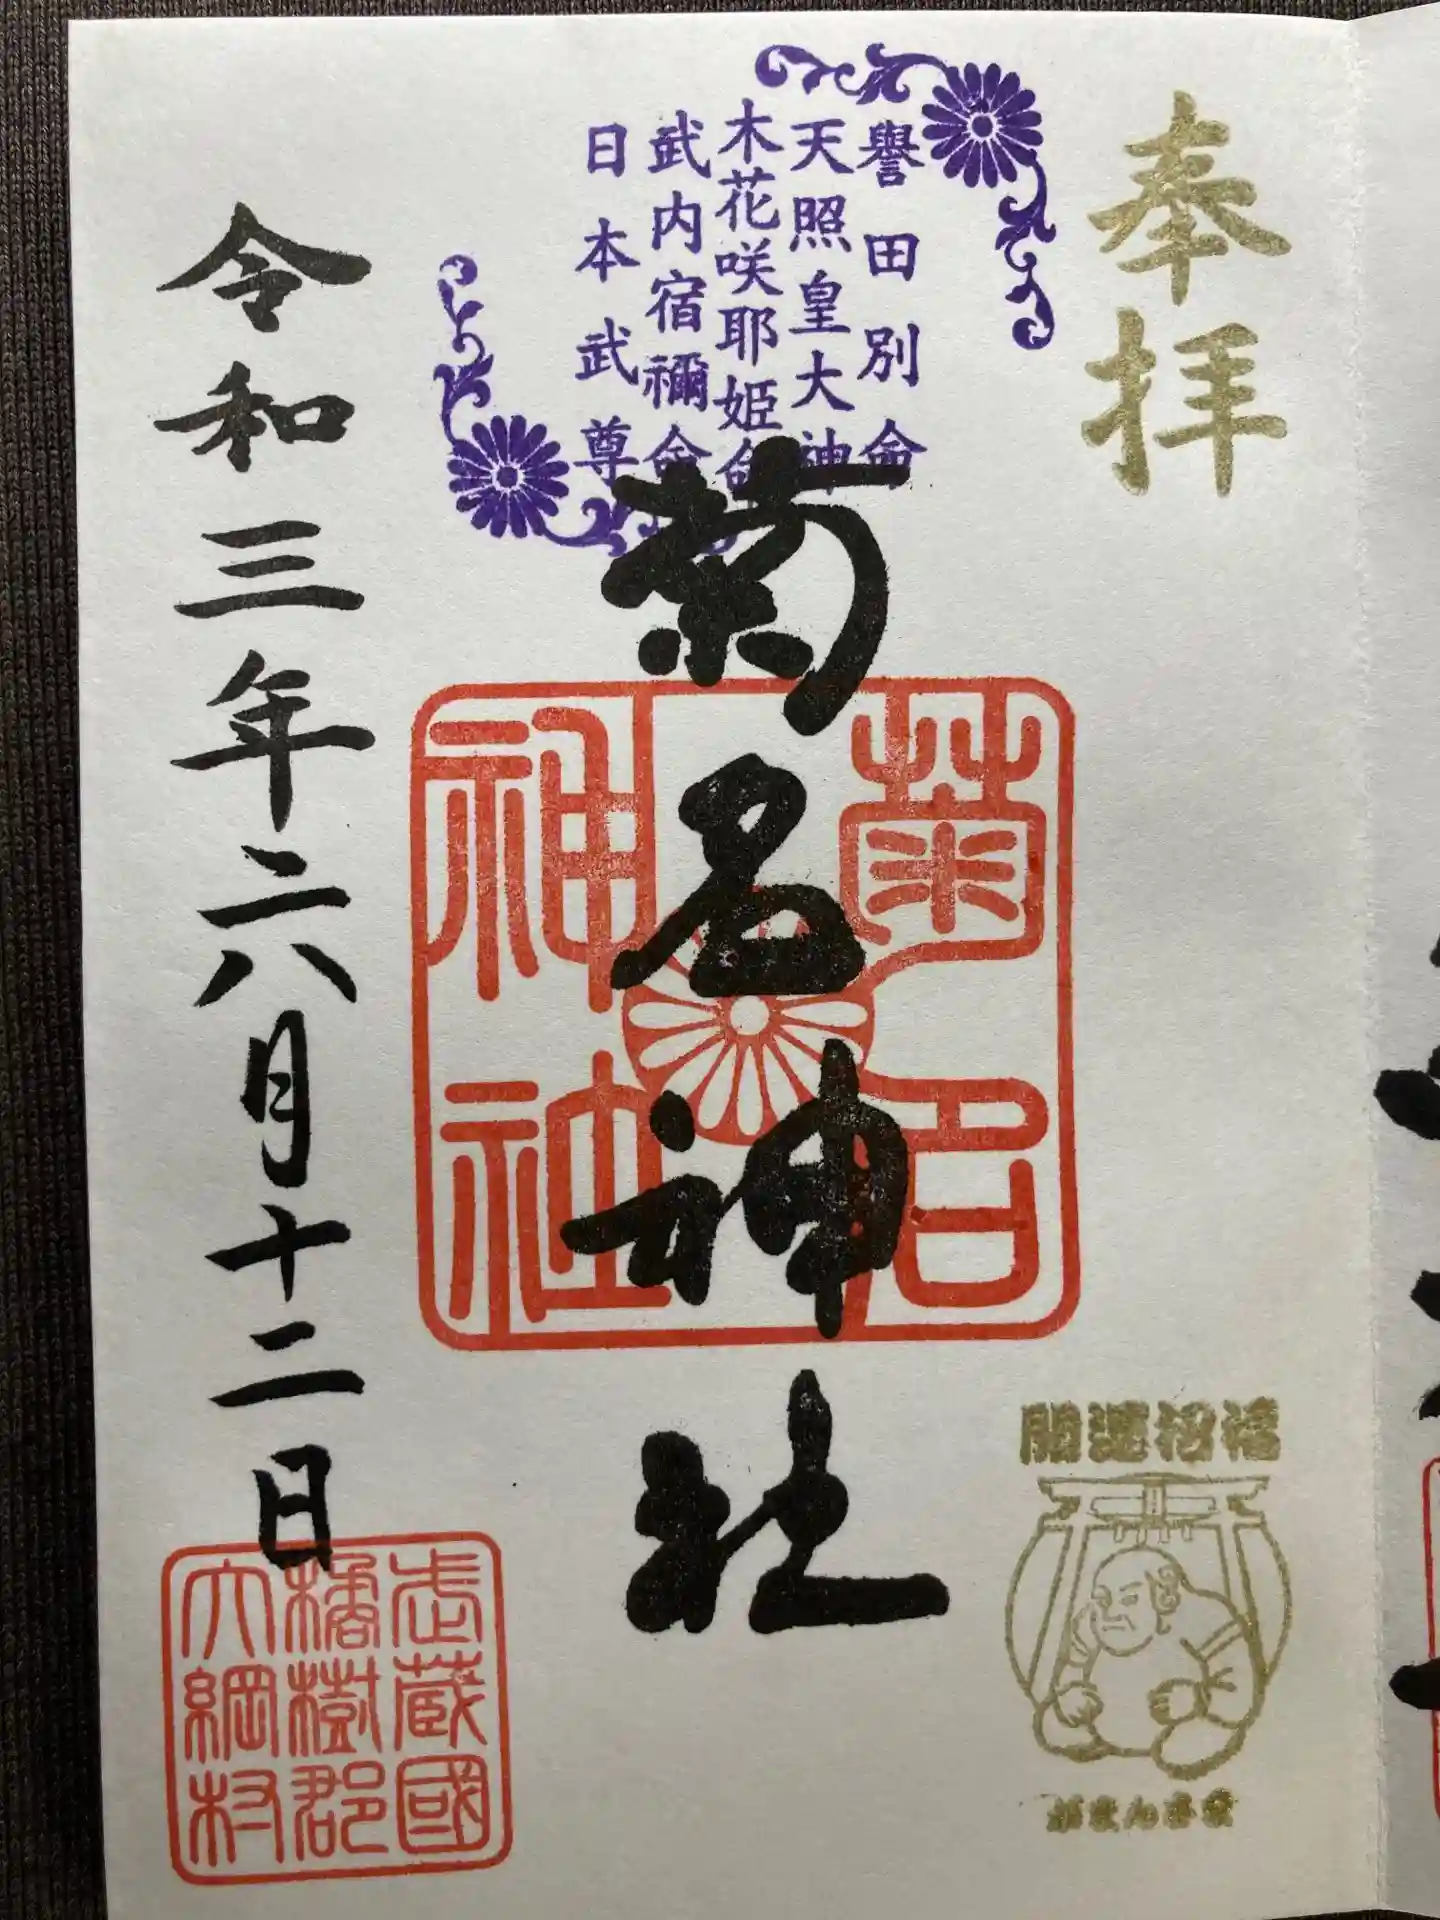 奉拝
譽田別命
天照皇大神
木花咲耶姫命
武内宿禰命
日本武尊
菊名神社
菊名
神社
開運招福
がまんさま
令和三年二六月十二日
武蔵國
橘樹郡
大綱村